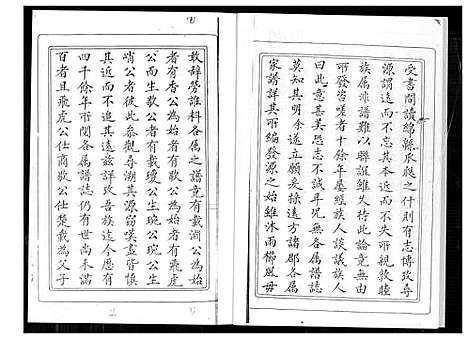 受書間讀綿緜瓜瓞之什則有志博攷尋
源謂遠而不忘其本近而不失所親敦睦
族属非譜難以聯誼雖久待此論竟無由
所發咨嗟者十余年屢經族人談議族人
曰此意甚美恐志不誠耳况無各属譜誌
莫知其明余遂立願爰採遠方諸郡各属
家譜詳其所編發源之始雖沐雨櫛風毋
敢辞勞誰料各属之譜竟有載澗公為始
者有香公為始者有琬公為始者有飛虎
公而生歌公者有載瓊公生琬公琬公生
峭公者彼此參觀尋溯其源窃嘆盡皆慎
其近而不其追遠兹詳攷吾族迄今
四千餘年所閱各属譜誌仍有世尚未滿
百者且飛虎公仕商歌公仕楚載為父子